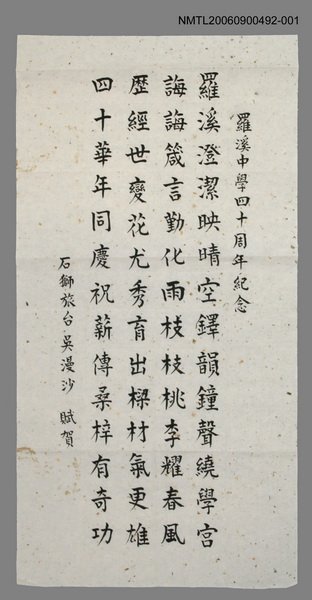 NMTL20060900492-001
羅溪中學四十周年紀念
羅溪澄潔映晴空鐸韻鐘聲繞學宮
誨誨箴言勤化雨枝枝桃李耀春風
歷經世變花尤秀育出樑材氣更雄
四十華年同慶祝薪傳桑梓有奇功
石獅旅台吳漫沙 賦賀